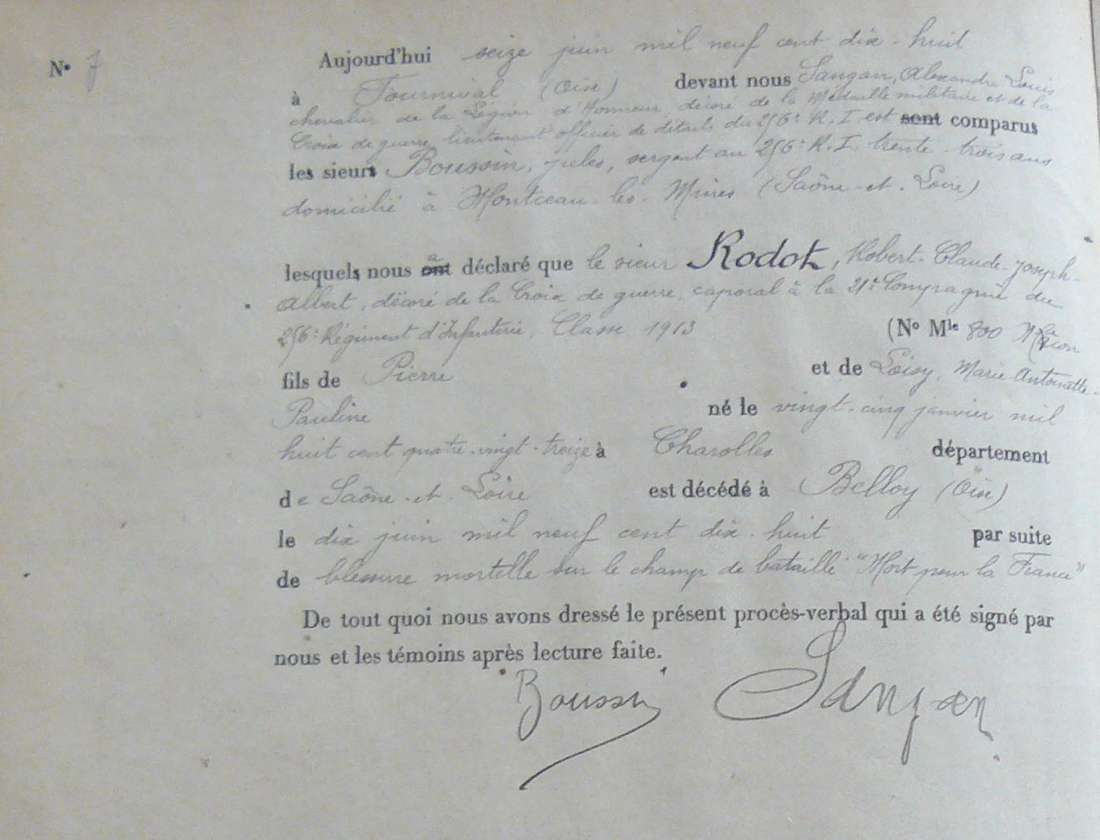 N° 7
Aujourd'hui seize juin mil neuf cent dix-huit
à Fournival (Oise) devant nous Sangan, Alexandre Louis
chevalier de la Légion d'Honneur, décoré de la Médaille militaire et de la
Croix de guerre, lieutenant officier de détails du 256e R.I. est sont comparus
les sieurs Boussin, Jules, sergent au 256e R.I. trente-trois ans
domicilié à Montceau-les-Mines (Saône-et-Loire)
lesquels nous a ont déclaré que le sieur Rodot, Robert-Claude-Joseph-
Albert, décoré de la Croix de guerre, caporal à la 21e Compagnie du
256e Régiment d'Infanterie, Classe 1913 (No Mle 800
fils de Pierre et de Loisy, Marie Antoinette-
Pauline né le vingt-cinq janvier mil
huit cent quatre-vingt-treize à Charolles département
de Saône-et-Loire est décédé à Belloy (Oise)
le dix juin mil neuf cent dix-huit par suite
de blessure mortelle sur le champ de bataille "Mort pour la France"
De tout quoi nous avons dressé le présent procès-verbal qui a été signé par
nous et les témoins après lecture faite.
Boussin Sangan